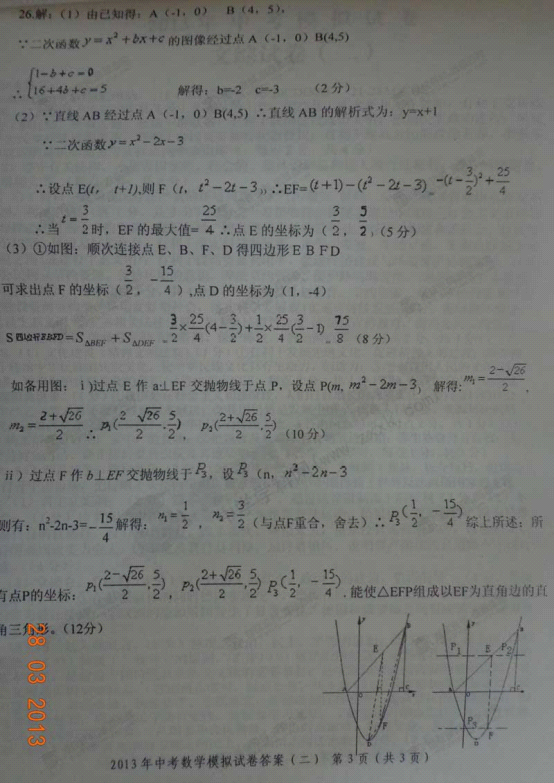 26.解：（1）由已知得：A（-1，0） B（4，5），
∵二次函数 y = x² + bx + c 的图像经过点 A（-1，0）B(4,5)
∴ { 1-b+c=0
16+4b+c=5 解得：b=-2 c=-3 （2 分）
（2）∵直线 AB 经过点 A（-1，0）B(4,5) ∴直线 AB 的解析式为：y=x+1
∵二次函数 y = x² - 2x - 3
∴设点 E(t， t+1),则 F（t，t² - 2t - 3）∴EF= (t+1) - (t² - 2t - 3) = -(t - 3/2)² + 25/4
∴当 t = 3/2 时，EF 的最大值= 25/4 ∴点 E 的坐标为（3/2，5/2）（5 分）
（3）①如图：顺次连接点 E、B、F、D 得四边形ＥＢＦＤ
可求出点 F 的坐标（3/2，-15/4）,点 D 的坐标为（1，-4）
S四边形EBFD = S△BEF + S△DEF = 1/2 × 25/4 (4 - 3/2) + 1/2 × 25/4 (3/2 - 1) = 75/8 （8 分）
如备用图：ⅰ)过点 E 作 a⊥EF 交抛物线于点 P，设点 P(m, m² - 2m - 3) 解得: m₁ = (2-√26)/2 ，
m₂ = (2+√26)/2 ∴ P₁( (2 √26)/2 , 5/2 )， P₂( (2+√26)/2 , 5/2 ) （10 分）
ⅱ）过点 F 作 b⊥EF 交抛物线于 P₃，设 P₃（n，n² - 2n - 3
则有：n²-2n-3= - 15/4 解得：n₁ = 1/2 ， n₂ = 3/2（与点F重合，舍去）∴ P₃( 1/2 ，- 15/4 ) 综上所述：所
有点P的坐标：P₁( (2-√26)/2 , 5/2 )，P₂( (2+√26)/2 , 5/2 ) P₃( 1/2 ，- 15/4 ). 能使△EFP组成以EF为直角边的直
角三角形。（12分）
28 03 2013
2013 年中考数学模拟试卷答案（二） 第 3 页（共 3 页）